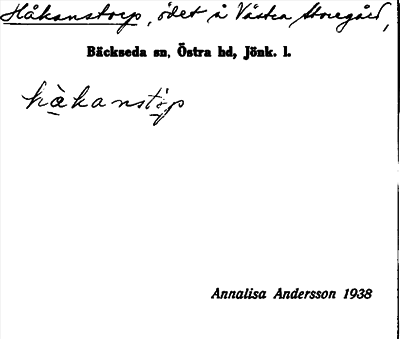 Håkanstorp, ödet å Västra Storegård,
Bäckseda sn, Östra hd, Jönk. l.
hàkanstȯp
Annalisa Andersson 1938